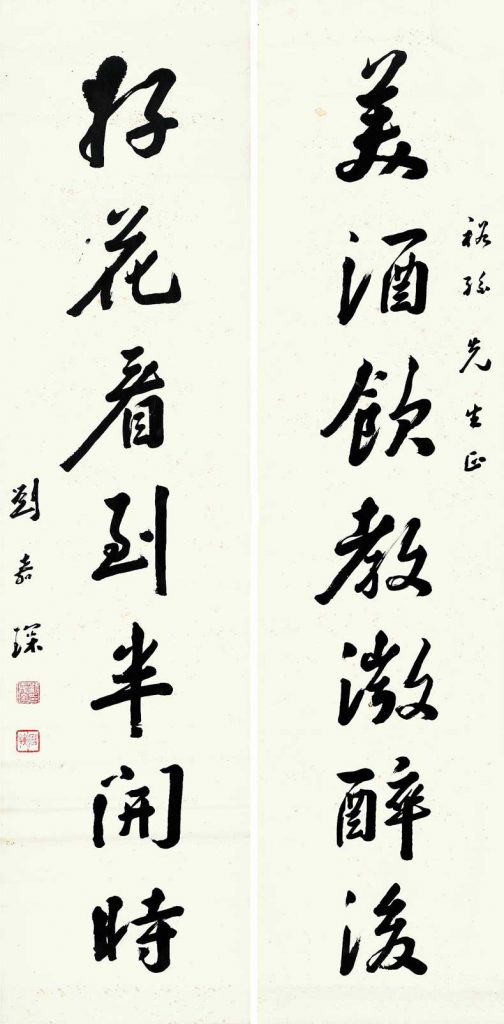 裕孫先生正
美酒飲教微醉後
好花看到半開時
劉嘉琛